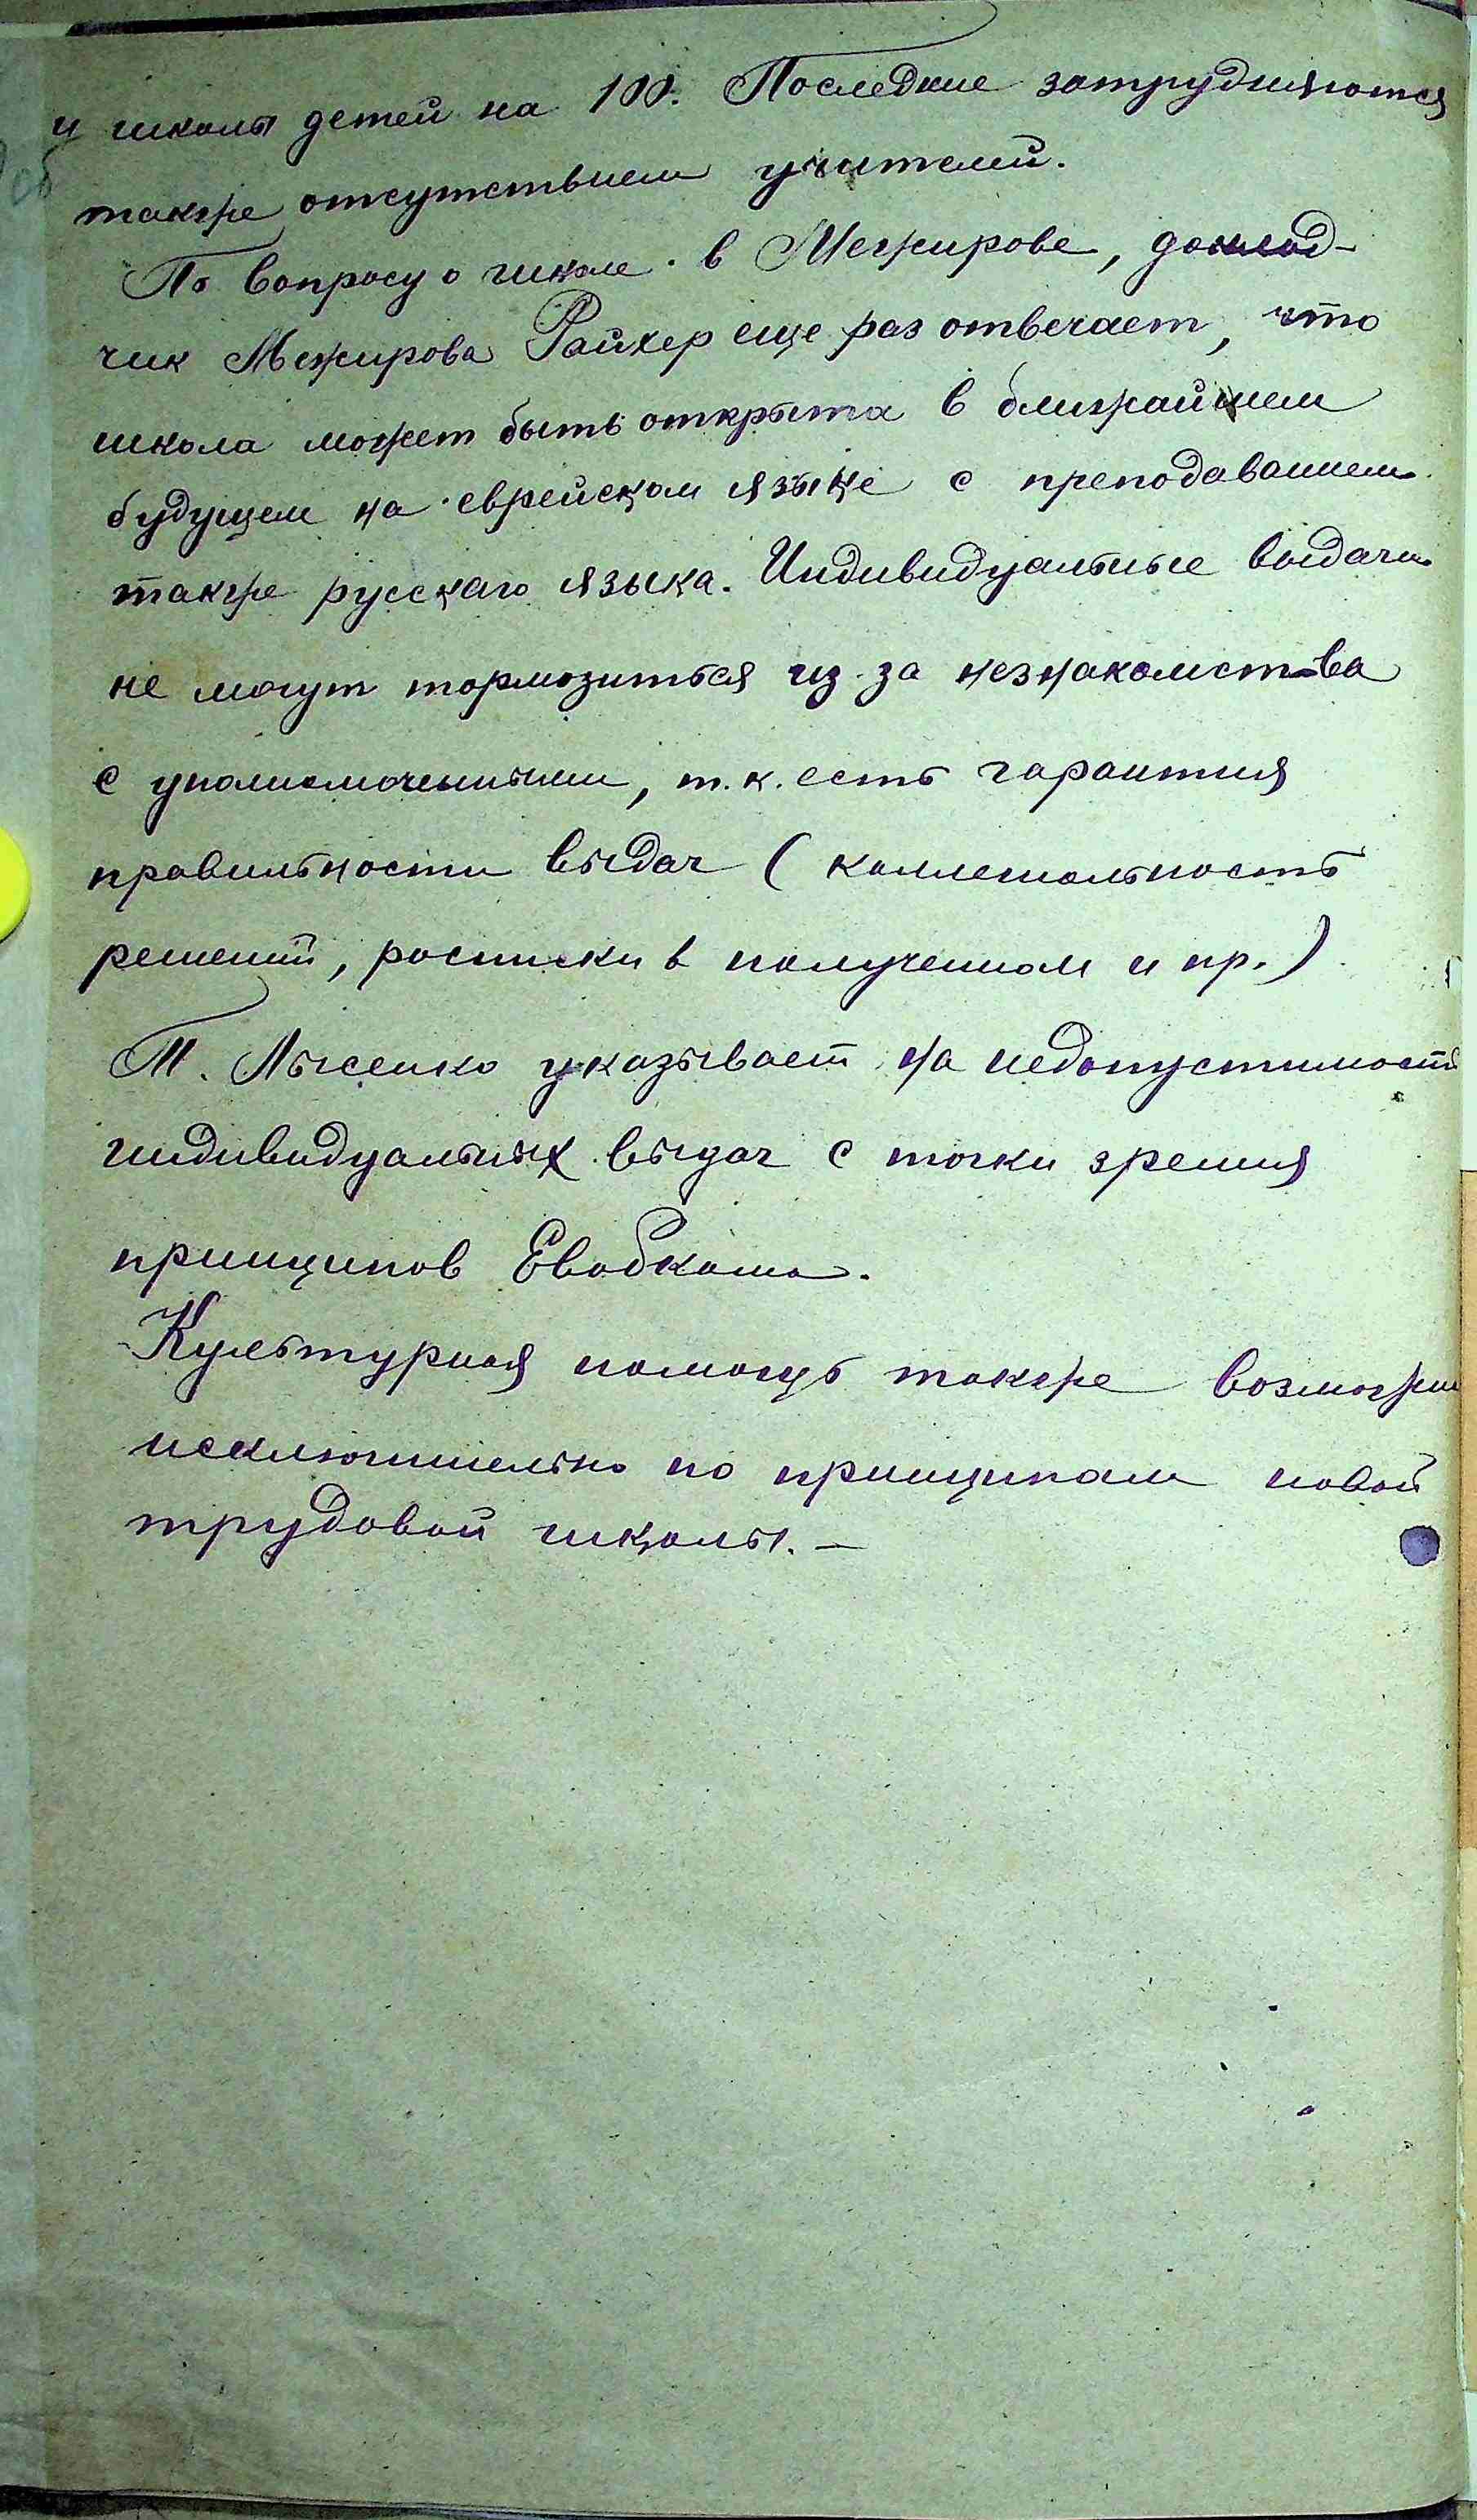 и школы детей на 100. Последние затрудняются
также отсутствием учителей.
По вопросу о школе в Межирове, доклад-
чик Межирова Райхер еще раз отвечает, что
школа может быть открыта в ближайшем
будущем на еврейском языке с преподаванием
также русскаго языка. Индивидуальные выдачи
не могут тормозиться из-за незнакомства
с уполномоченными, т.к. есть гарантия
правильности выдач (коллегиальность
решений, расписки в полученном и пр.)
Т. Лысенко указывает на недопустимость
индивидуальных выдач с точки зрения
принципов Евобкома.
Культурная помощь также возможна
исключительно по принципам новой
трудовой школы. –